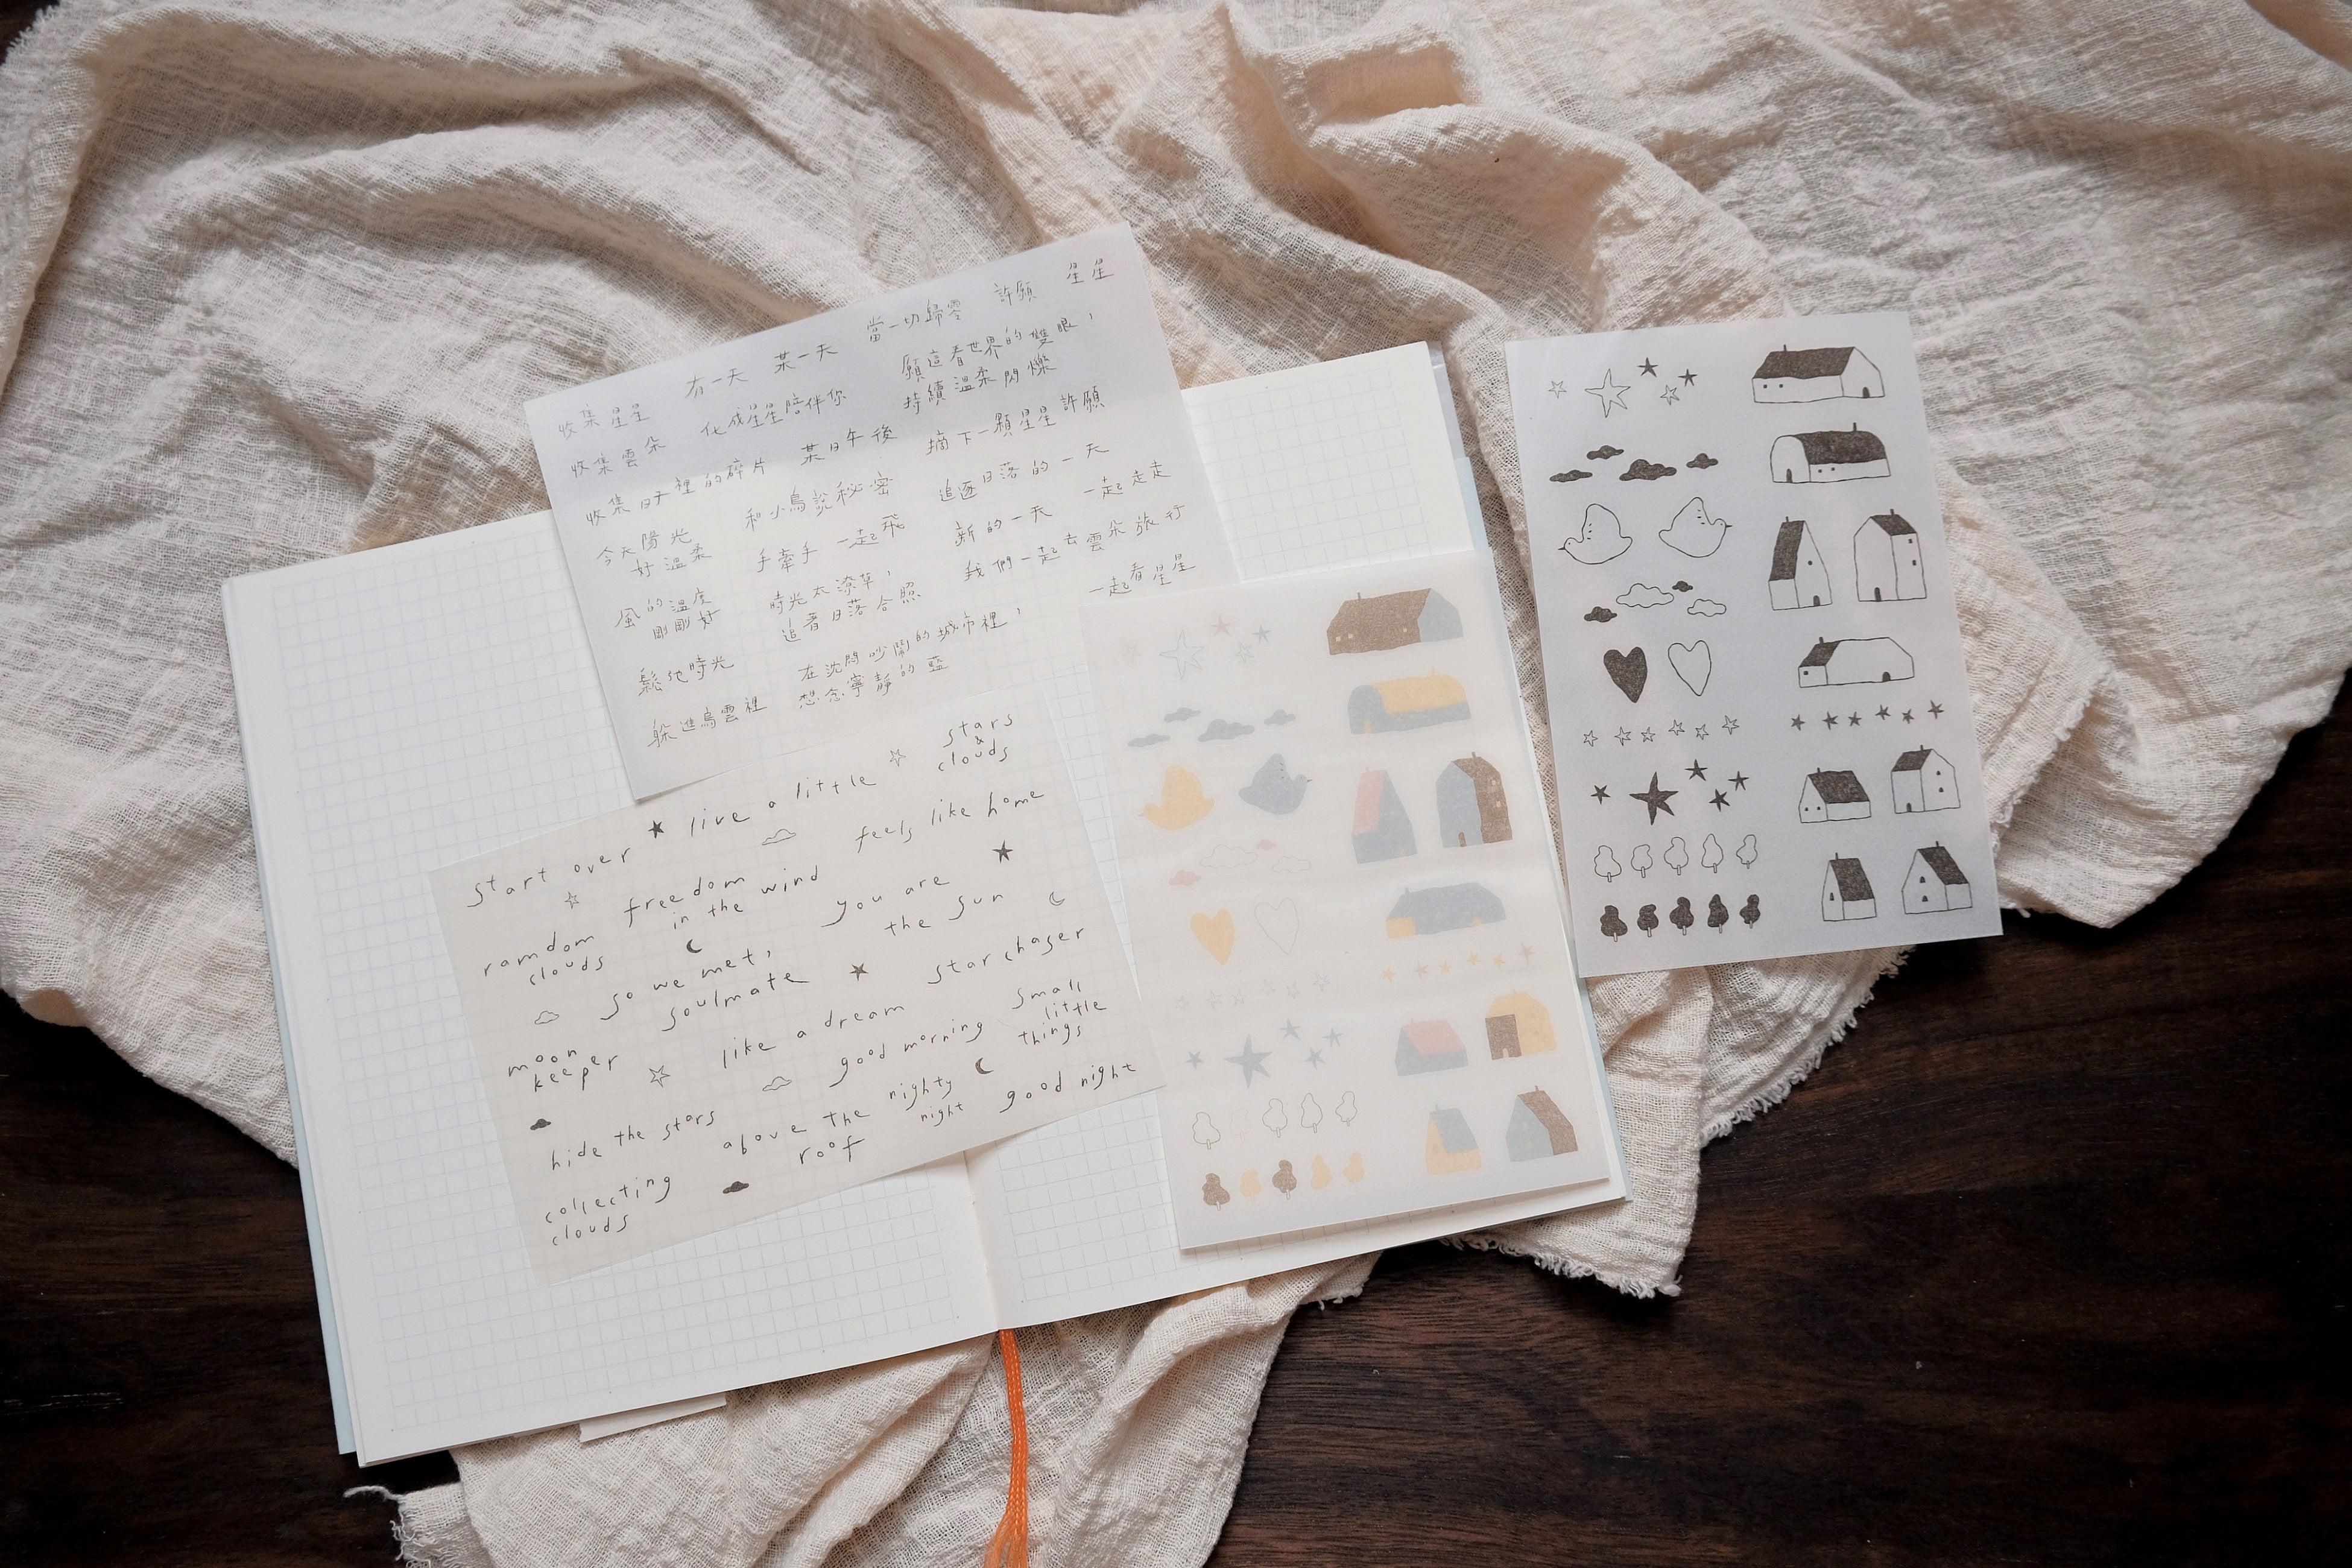 收集星星
有一天
某一天
當一切歸零
許願
星星
收集雲朵
化成星星陪伴你
願這看世界的雙眼，
持續溫柔閃爍
收集日子裡的碎片
某日午後
摘下一顆星星許願
今天陽光
好溫柔
和小鳥說秘密
追逐日落的一天
風的溫度
剛剛好
手牽手
一起飛
新的一天
一起走走
鬆弛時光
時光太潦草，
追著日落合照
我們一起去雲朵旅行
躲進烏雲裡
在沈悶吵鬧的城市裡，
想念寧靜的藍
一起看星星
start over
live a little
stars
&
clouds
ramdom
clouds
freedom
in the wind
feels like home
so we met,
soulmate
you are
the sun
moon
keeper
like a dream
star chaser
hide the stars
good morning
small
little
things
collecting
clouds
above the
roof
nighty
night
good night